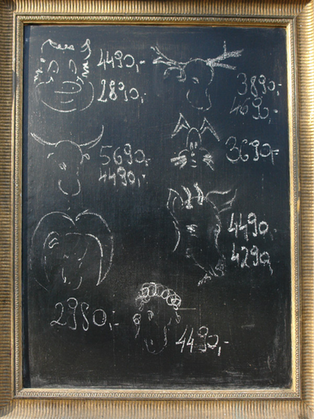 4490,-
2890,-
3890,-
4690,-
5690,-
4490,-
3690,-
4490
4290
2980,-
4490,-